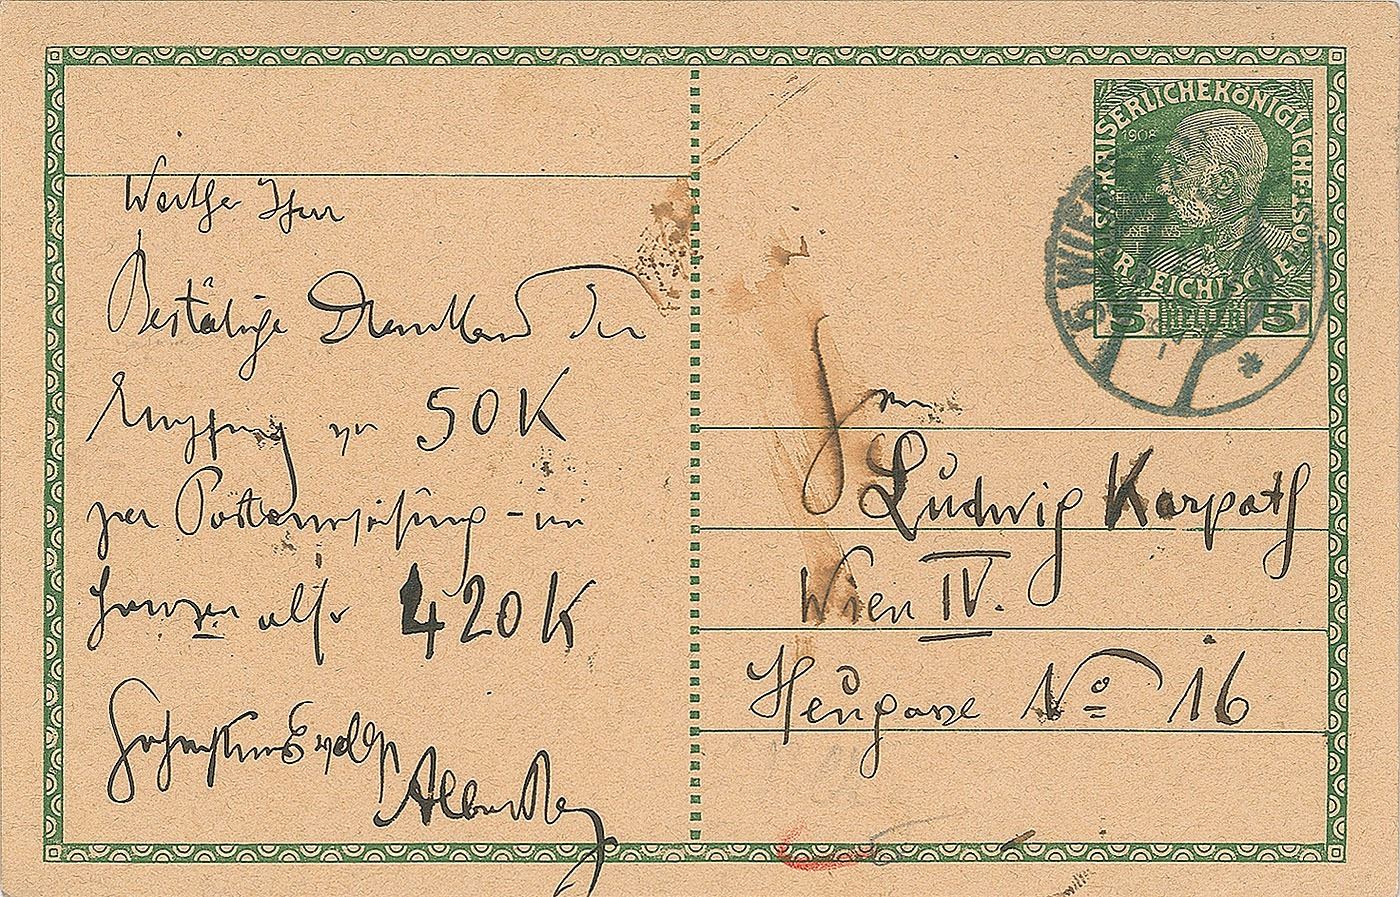 Werther Herr
Bestätige Dankend den
Empfang von 50 K
per Postanweisung - im
Ganzen also 420 K
Hochachtungsvollst
KAISERLICHE KÖNIGLICHE ÖSTERREICHISCHE
1908
5 HELLER 5
WIEN
Herrn
Ludwig Karpath
Wien IV.
Heugasse No 16